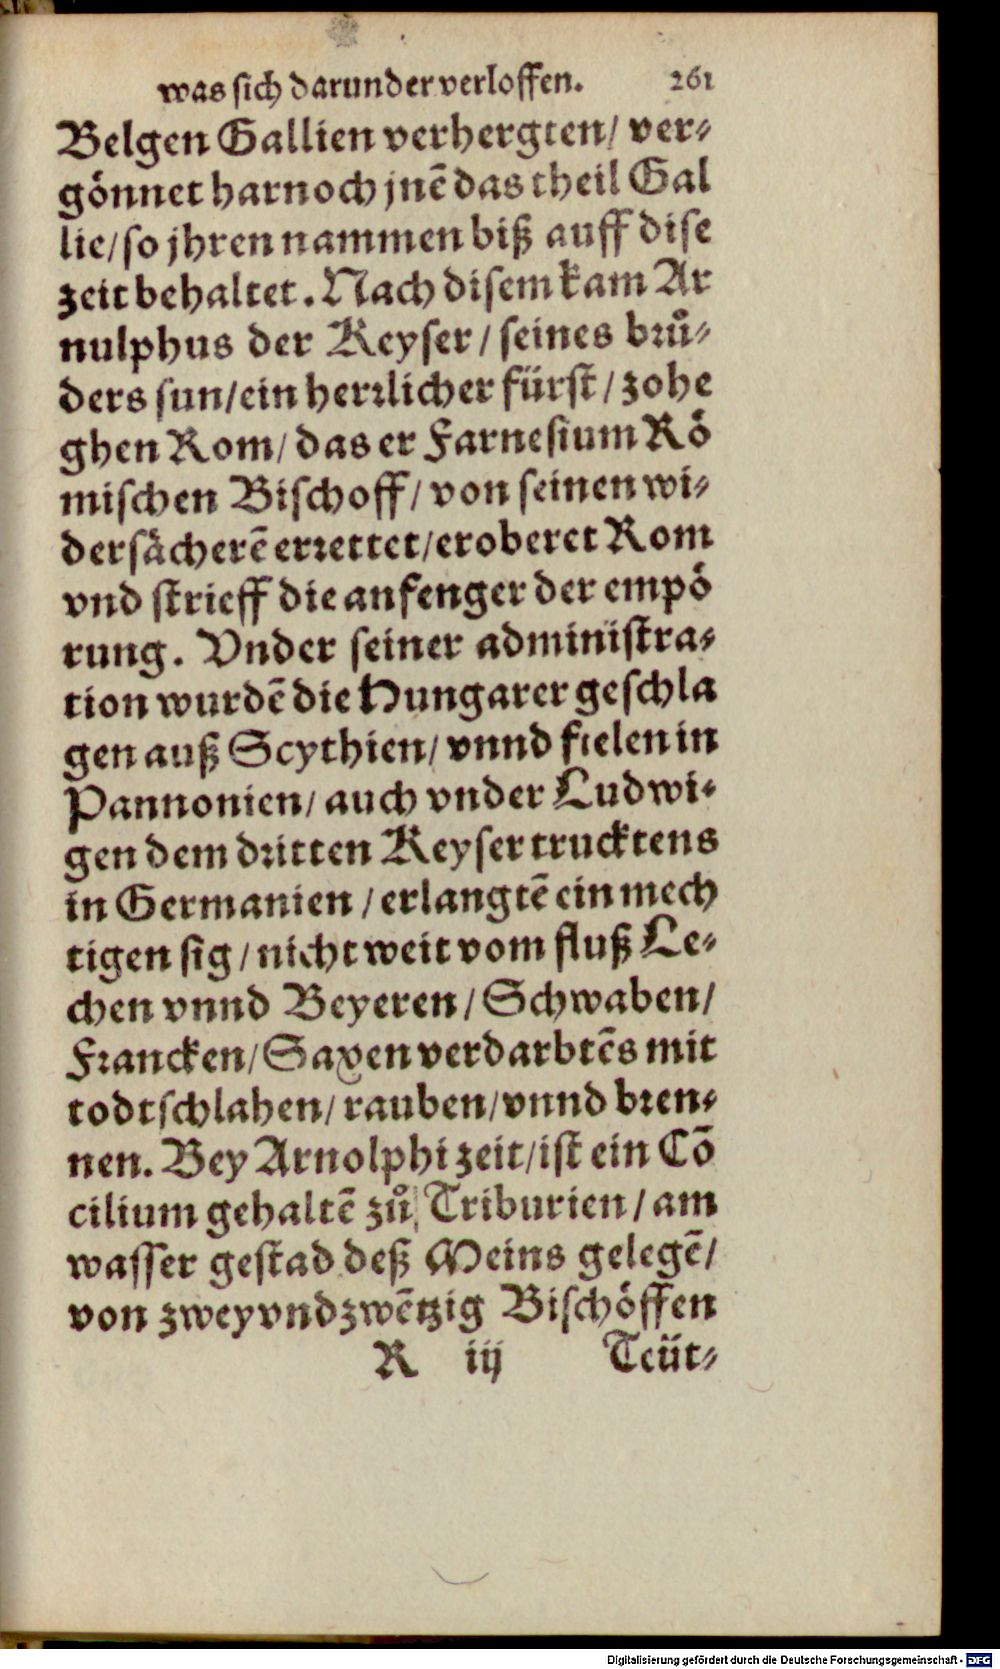 was sich darunder verloffen. 261
Belgen Gallien verhergten/ ver⸗
gönnet harnoch jnē das theil Gal
lie/ so jhren nammen biß auff dise
zeit behaltet. Nach disem kam Ar
nulphus der Keyser / seines brů⸗
ders sun/ ein herꝛlicher fürst / zohe
ghen Rom/ das er Farnesium Rö
mischen Bischoff/ von seinen wi⸗
dersächerē erꝛettet/ eroberet Rom
vnd strieff die anfenger der empö
rung. Vnder seiner administra⸗
tion wurdē die Hungarer geschla
gen auß Scythien/ vnnd fielen in
Pannonien/ auch vnder Ludwi⸗
gen dem dꝛitten Keyser trucktens
in Germanien / erlangtē ein mech
tigen sig / nicht weit vom fluß Le⸗
chen vnnd Beyeren / Schwaben/
Fꝛancken/ Saxen verdarbtēs mit
todtschlahen/ rauben/ vnnd bꝛen⸗
nen. Bey Arnolphi zeit/ ist ein Cō
cilium gehaltē zů Triburien / am
wasser gestad deß Meins gelegē/
von zwey vnd zwētzig Bischöffen
R iij Teüt⸗
Digitalisierung gefördert durch die Deutsche Forschungsgemeinschaft - DFG